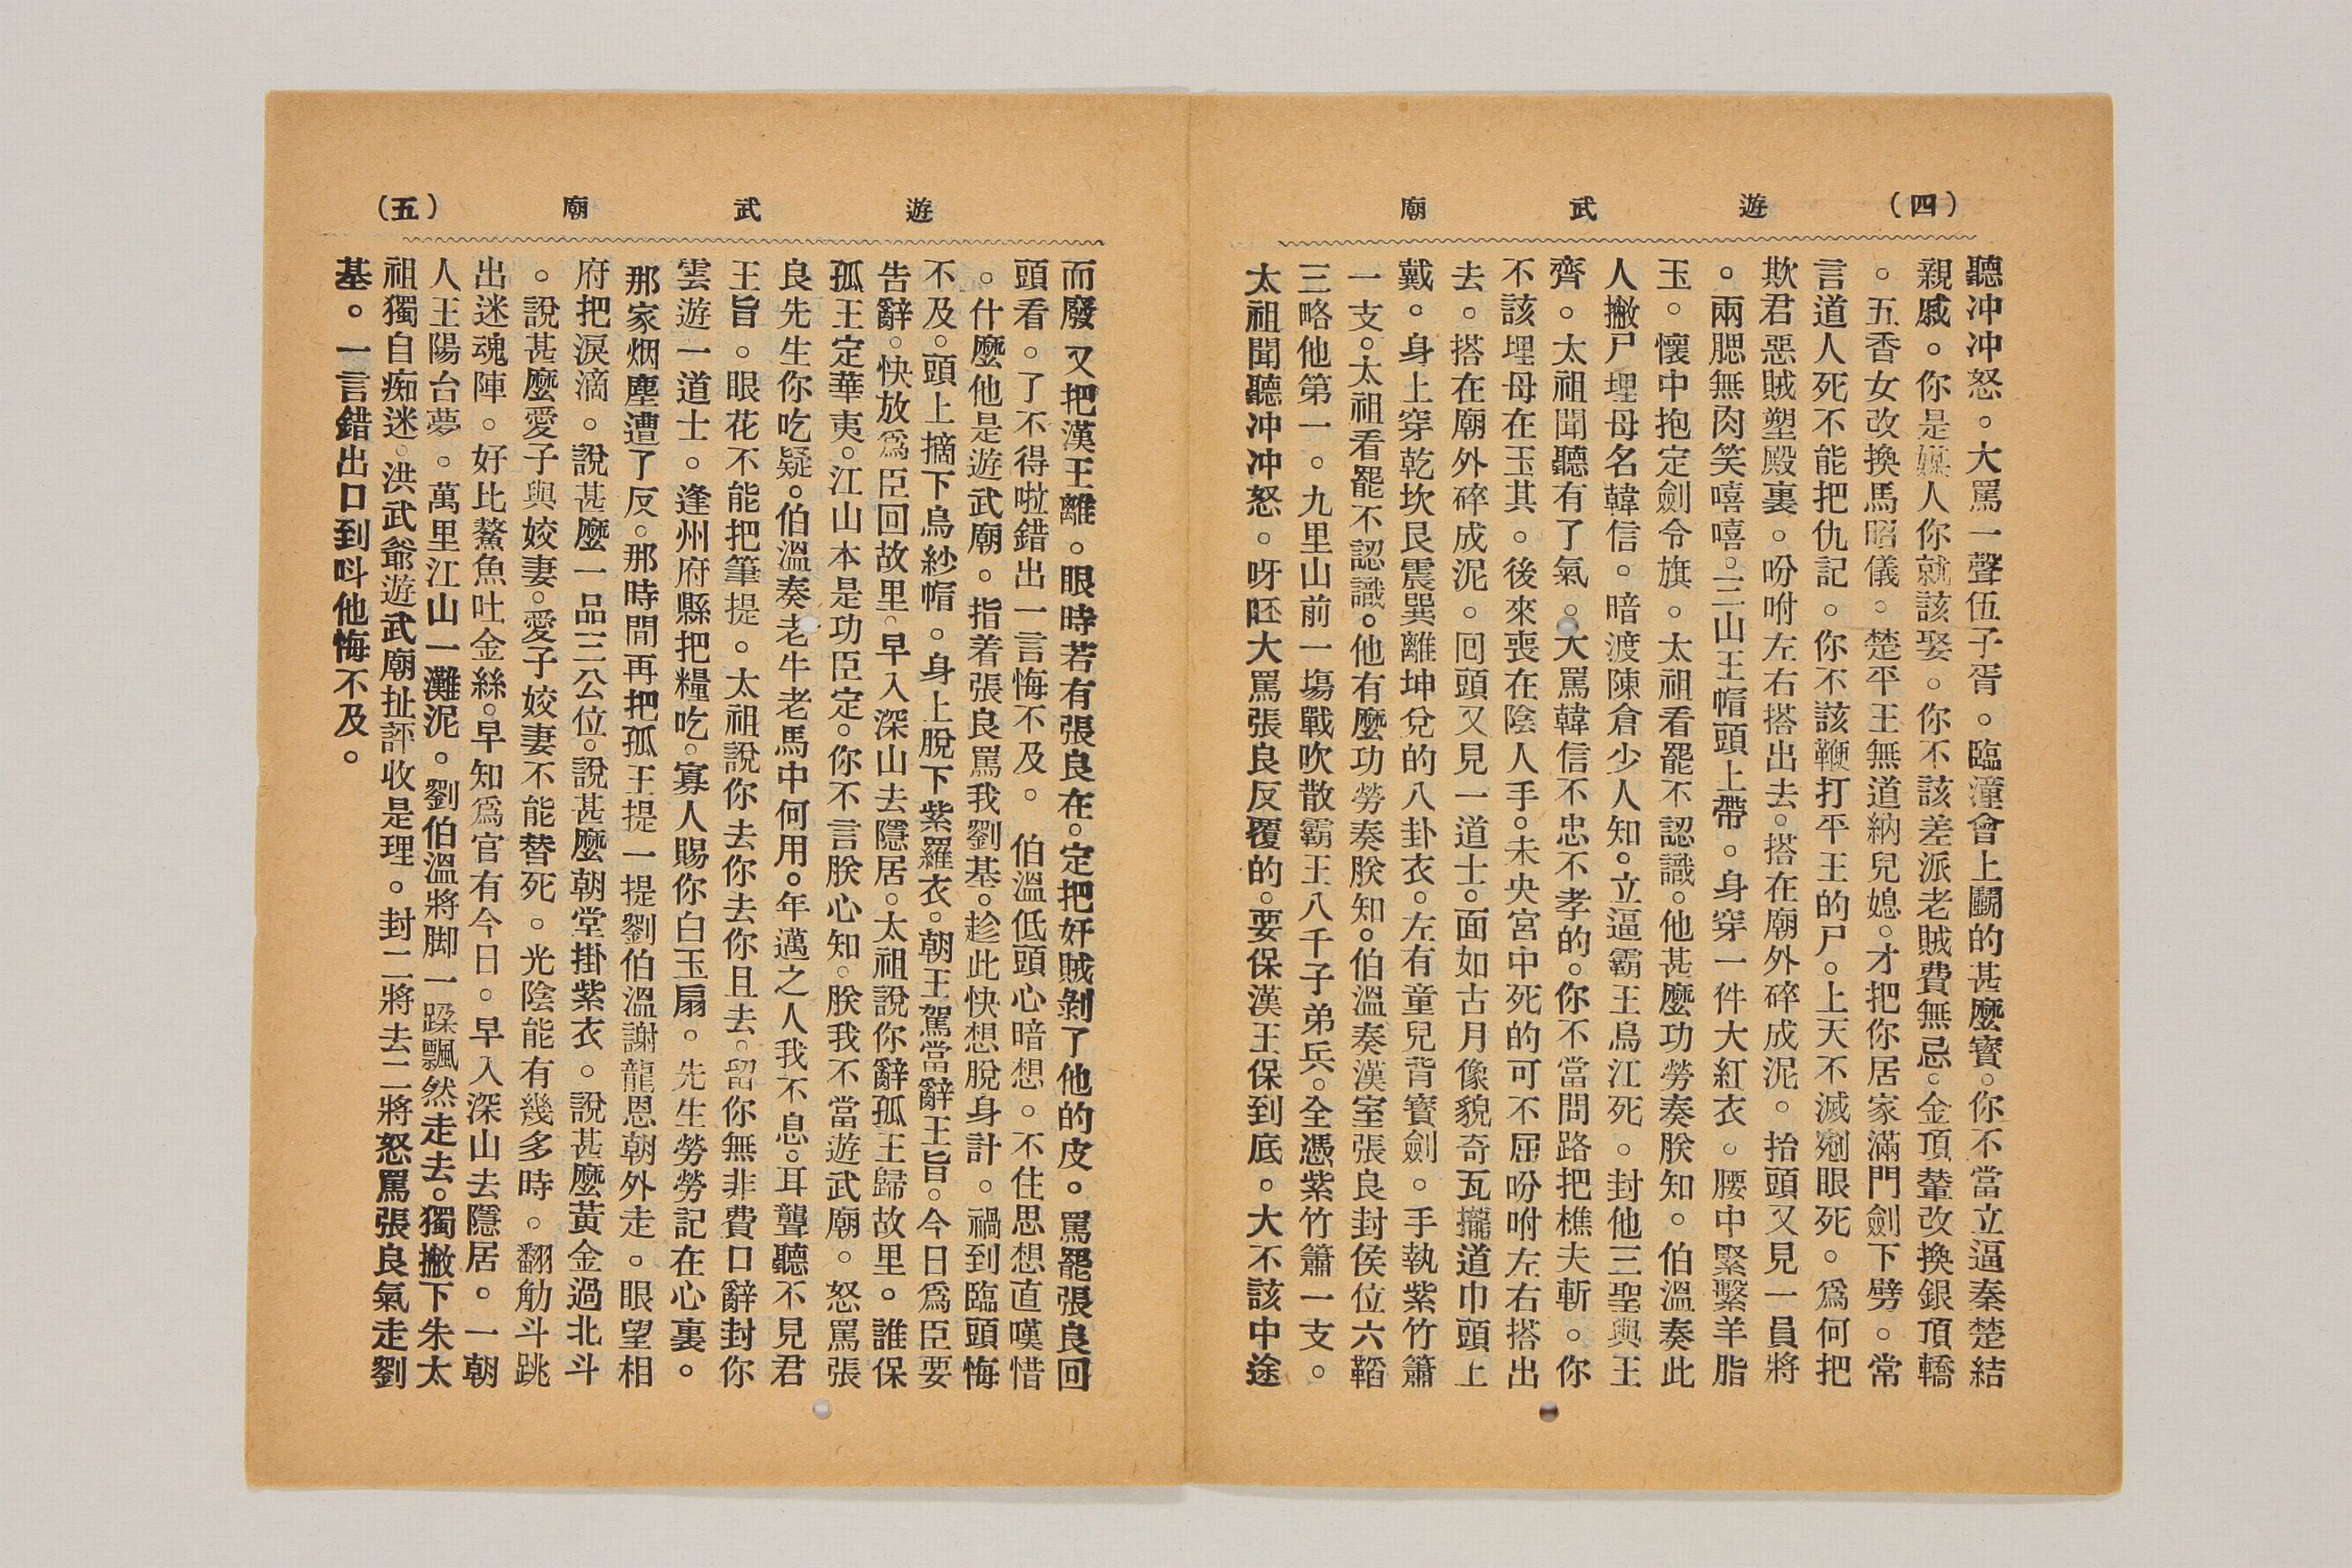 （四）　遊　武　廟
聽冲冲怒。大罵一聲伍子胥。臨潼會上鬭的甚麼寳。你不當立逼秦楚結
親戚。你是媒人你就該娶。你不該差派老賊費無忌。金頂輦改換銀頂轎
。五香女改換馬昭儀。楚平王無道納兒媳。才把你居家滿門劍下劈。常
言道人死不能把仇記。你不該鞭打平王的尸。上天不滅剜眼死。爲何把
欺君惡賊塑殿裏。吩咐左右搭出去。搭在廟外碎成泥。抬頭又見一員將
。兩腮無肉笑嘻嘻。三山王帽頭上帶。身穿一件大紅衣。腰中緊繫羊脂
玉。懷中抱定劍令旗。太祖看罷不認識。他甚麼功勞奏朕知。伯溫奏此
人撇尸埋母名韓信。暗渡陳倉少人知。立逼霸王烏江死。封他三聖與王
齊。太祖聞聽有了氣。大罵韓信不忠不孝的。你不當問路把樵夫斬。你
不該埋母在玉其。後來喪在陰人手。未央宮中死的可不屈吩咐左右搭出
去。搭在廟外碎成泥。回頭又見一道士。面如古月像貌奇瓦攏道巾頭上
戴。身上穿乾坎艮震巽離坤兌的八卦衣。左有童兒背寳劍。手執紫竹簫
一支。太祖看罷不認識。他有麼功勞奏朕知。伯溫奏漢室張良封侯位六韜
三略他第一。九里山前一塲戰吹散霸王八千子弟兵。全憑紫竹簫一支。
太祖聞聽冲冲怒。呀呸大罵張良反覆的。要保漢王保到底。大不該中途
（五）　遊　武　廟
而廢又把漢王離。眼時若有張良在。定把奸賊剝了他的皮。罵罷張良回
頭看。了不得啦錯出一言悔不及。伯溫低頭心暗想。不住思想直嘆惜
。什麼他是遊武廟。指着張良罵我劉基。趁此快想脫身計。禍到臨頭悔
不及。頭上摘下烏紗帽。身上脫下紫羅衣。朝王駕當辭王旨。今日爲臣要
告辭。快放爲臣回故里。早入深山去隱居。太祖說你辭孤王歸故里。誰保
孤王定華夷。江山本是功臣定。你不言朕心知。朕我不當遊武廟。怒罵張
良先生你吃疑。伯溫奏老牛老馬中何用。年邁之人我不息。耳聾聽不見君
王旨。眼花不能把筆提。太祖說你去你去你且去。留你無非費口辭封你
雲遊一道士。逢州府縣把糧吃。寡人賜你白玉扇。先生勞勞記在心裏。
那家烟塵遭了反。那時間再把孤王提一提劉伯溫謝龍恩朝外走。眼望相
府把淚滴。說甚麼一品三公位。說甚麼朝堂掛紫衣。說甚麼黃金過北斗
。說甚麼愛子與姣妻。愛子姣妻不能替死。光陰能有幾多時。翻觔斗跳
出迷魂陣。好比鰲魚吐金絲。早知爲官有今日。早入深山去隱居。一朝
人王陽台夢。萬里江山一灘泥。劉伯溫將脚一蹂飄然走去。獨撇下朱太
祖獨自痴迷。洪武爺遊武廟扯評收是理。封二將去二將怒罵張良氣走劉
基。一言錯出口到呌他悔不及。